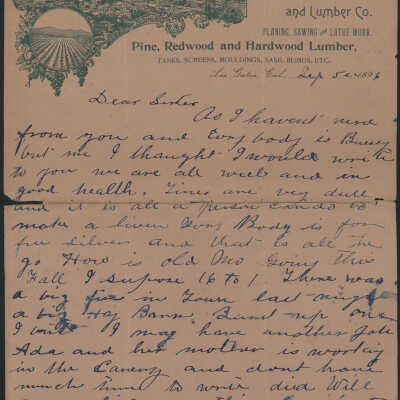 and Lumber Co.
PLANING, SAWING AND LATHE WORK.
Pine, Redwood and Hardwood Lumber,
TANKS, SCREENS, MOULDINGS, SASH, BLINDS, ETC.
Los Gatos, Cal. Sep 5 1896
Dear Sister
As I havent
from you and Evry body is Buesy
but me I thaught I would write
to you we are all well and in
good health. Times are vey dull
and it is all a person can do to
make a liven Evry Body is for
free silver and that is all the
go How is old Mo Going this
Fall I supose 16 to 1 There was
a big fire in Town last night
a big Hay Barn Burnt up
I I may have another Job
Ada and her mother is working
in the Canery and dont have
much time to write did Will